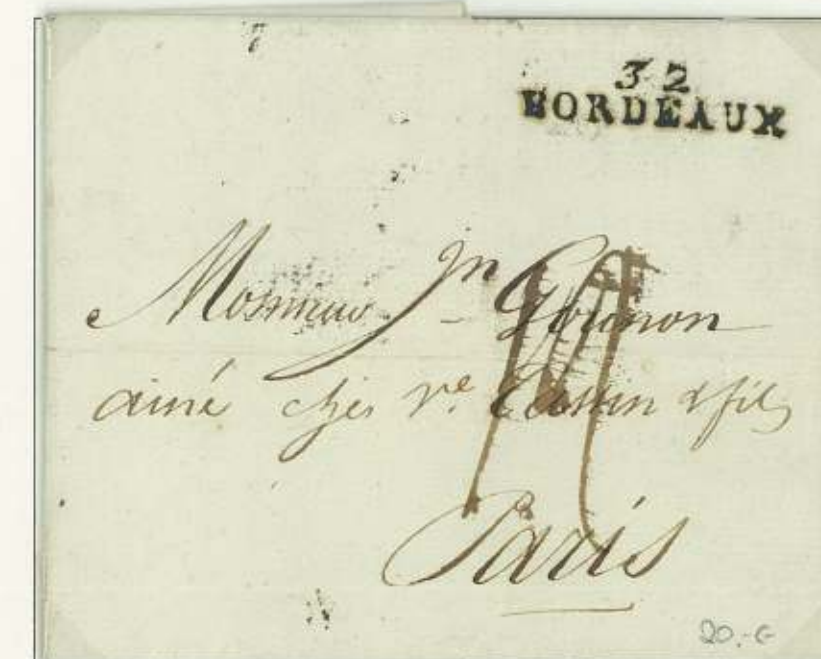 32
BORDEAUX
Monsieur Jn Gounon
ainé chez Ve Tassin & fils
Paris
20.-€